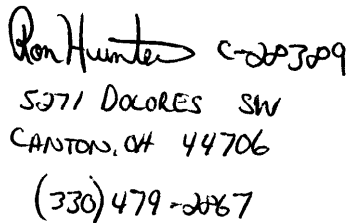 Ron Hunter C-28389
5271 DOLORES SW
CANTON, OH 44706
(330) 479-2867